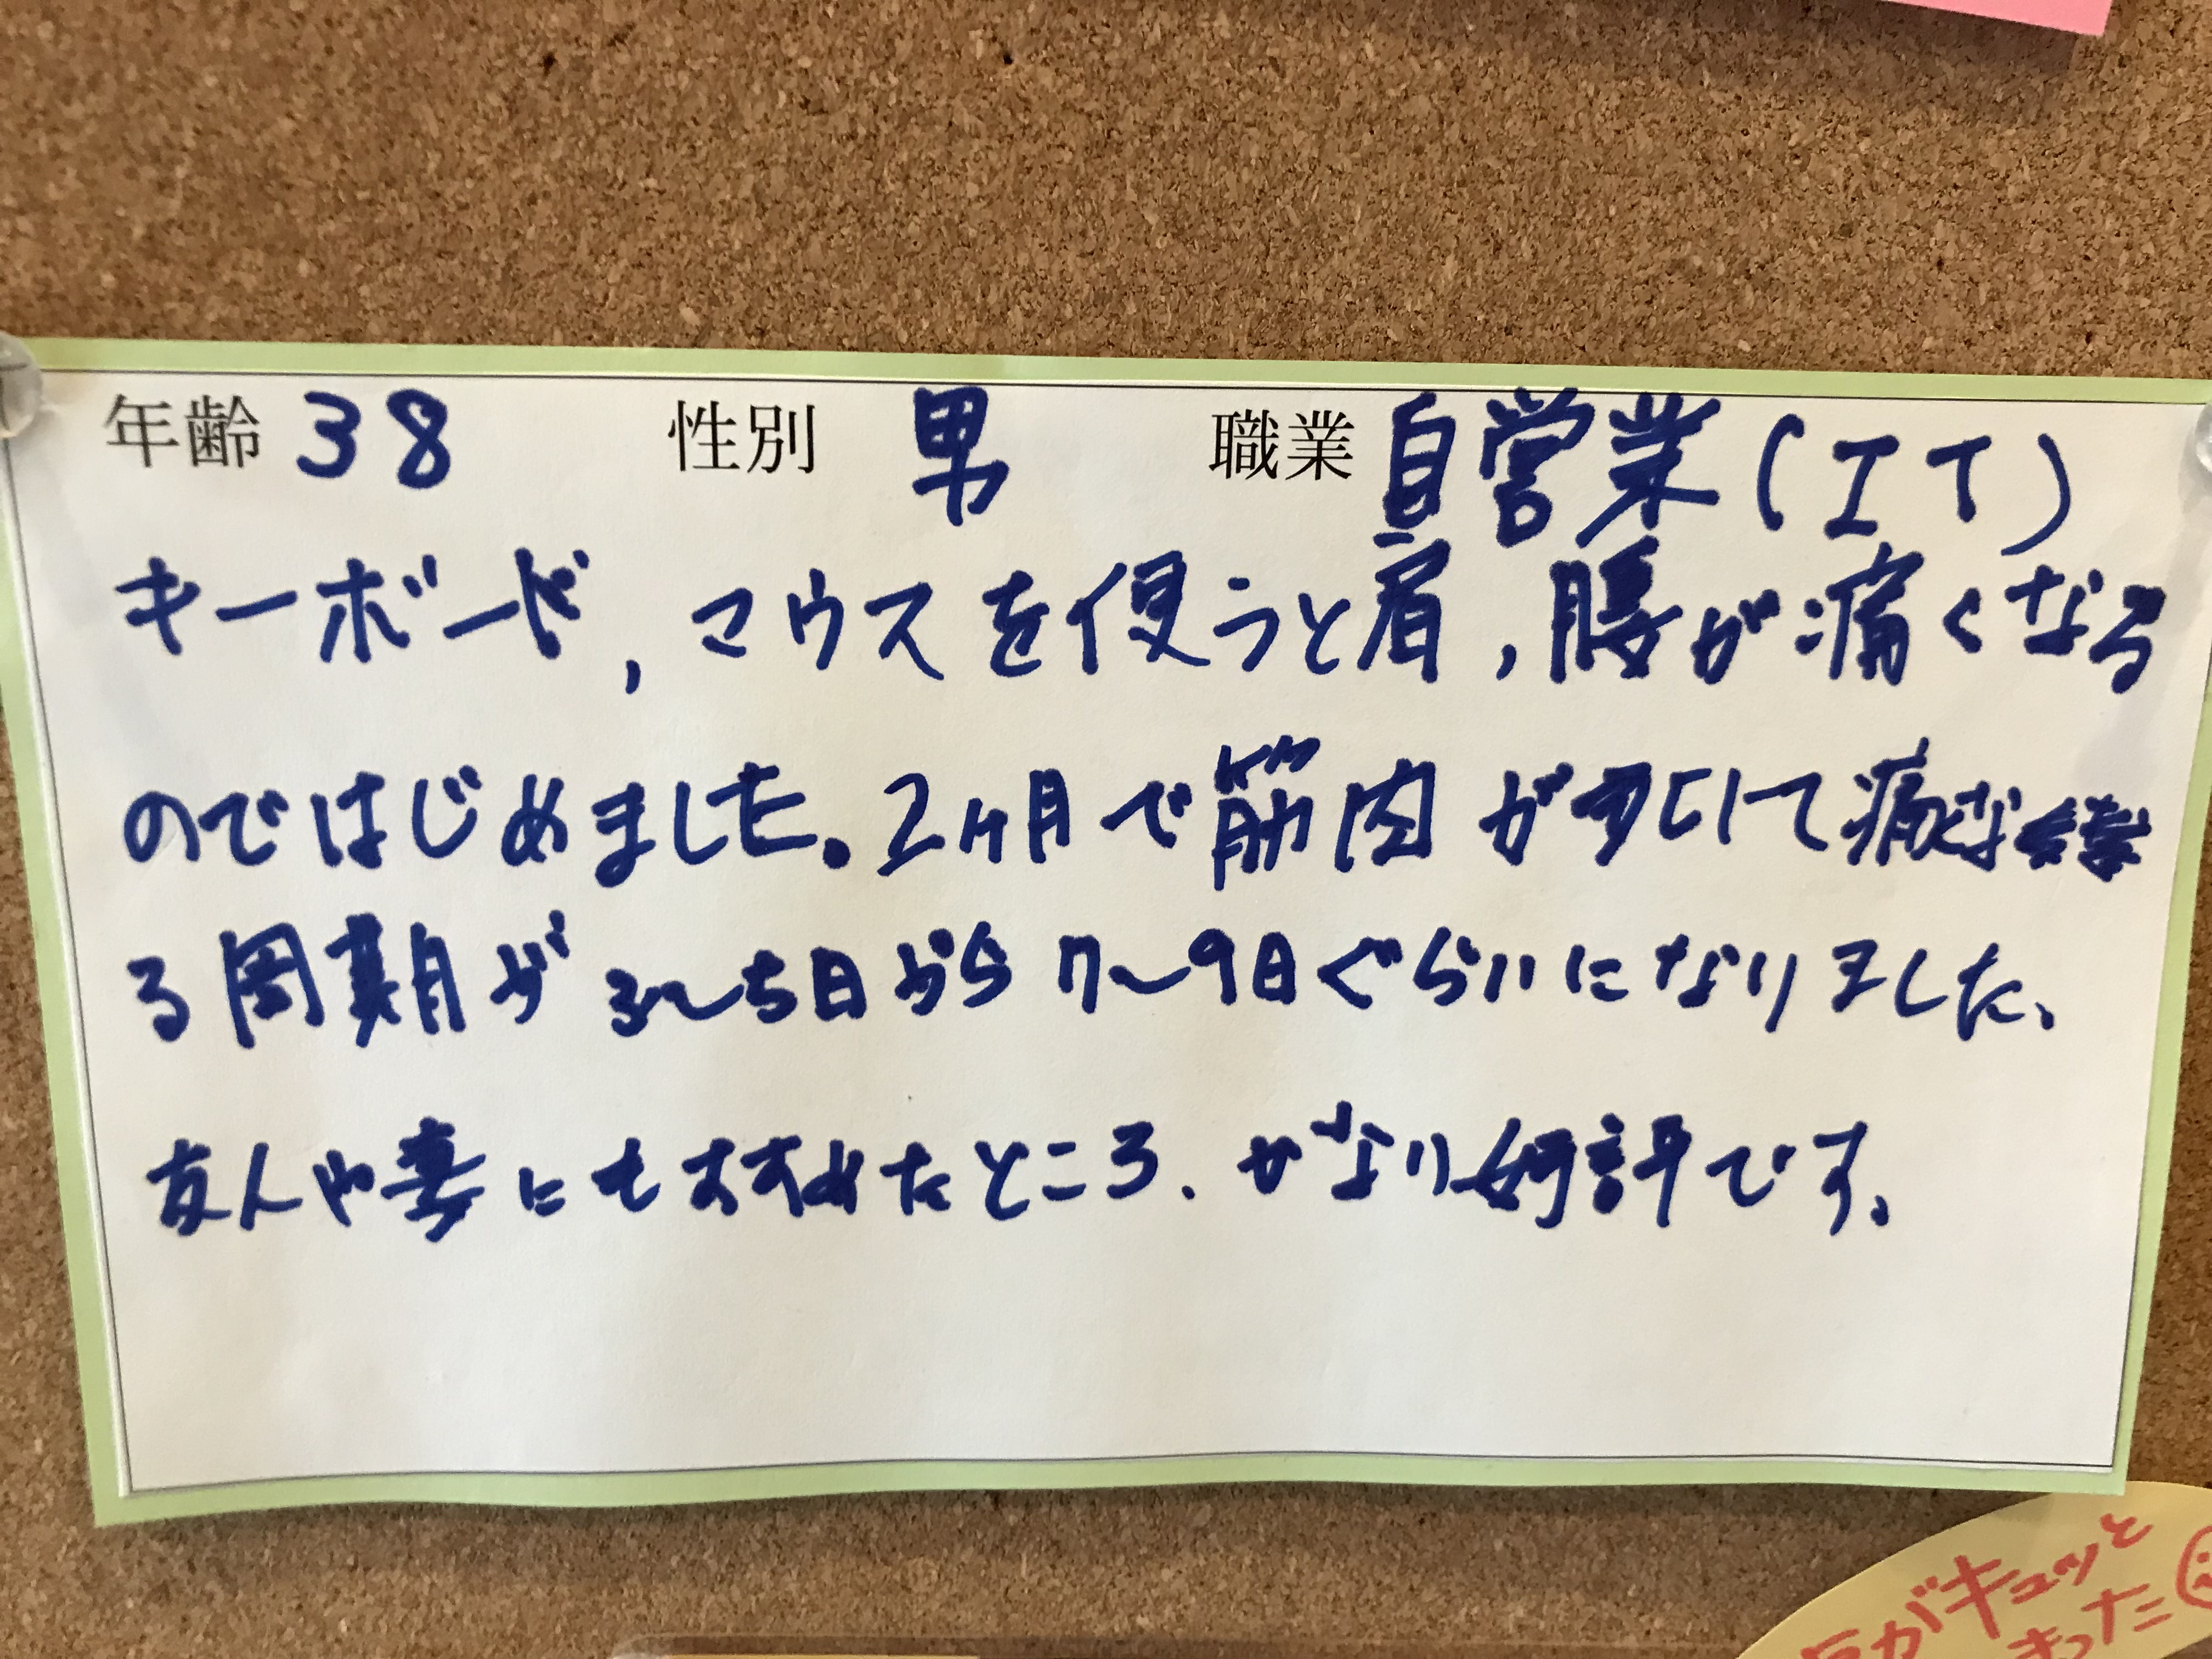 年齢 38 性別 男 職業 自営業(IT)
キーボード,マウスを使うと肩,腰が痛くなる
のではじめました。2ヶ月で筋肉が 痛くな
る周期が3〜5日から7〜9日ぐらいになりました、
友人や妻にもすすめたところ、かなり好評です、
がキュッと
まった